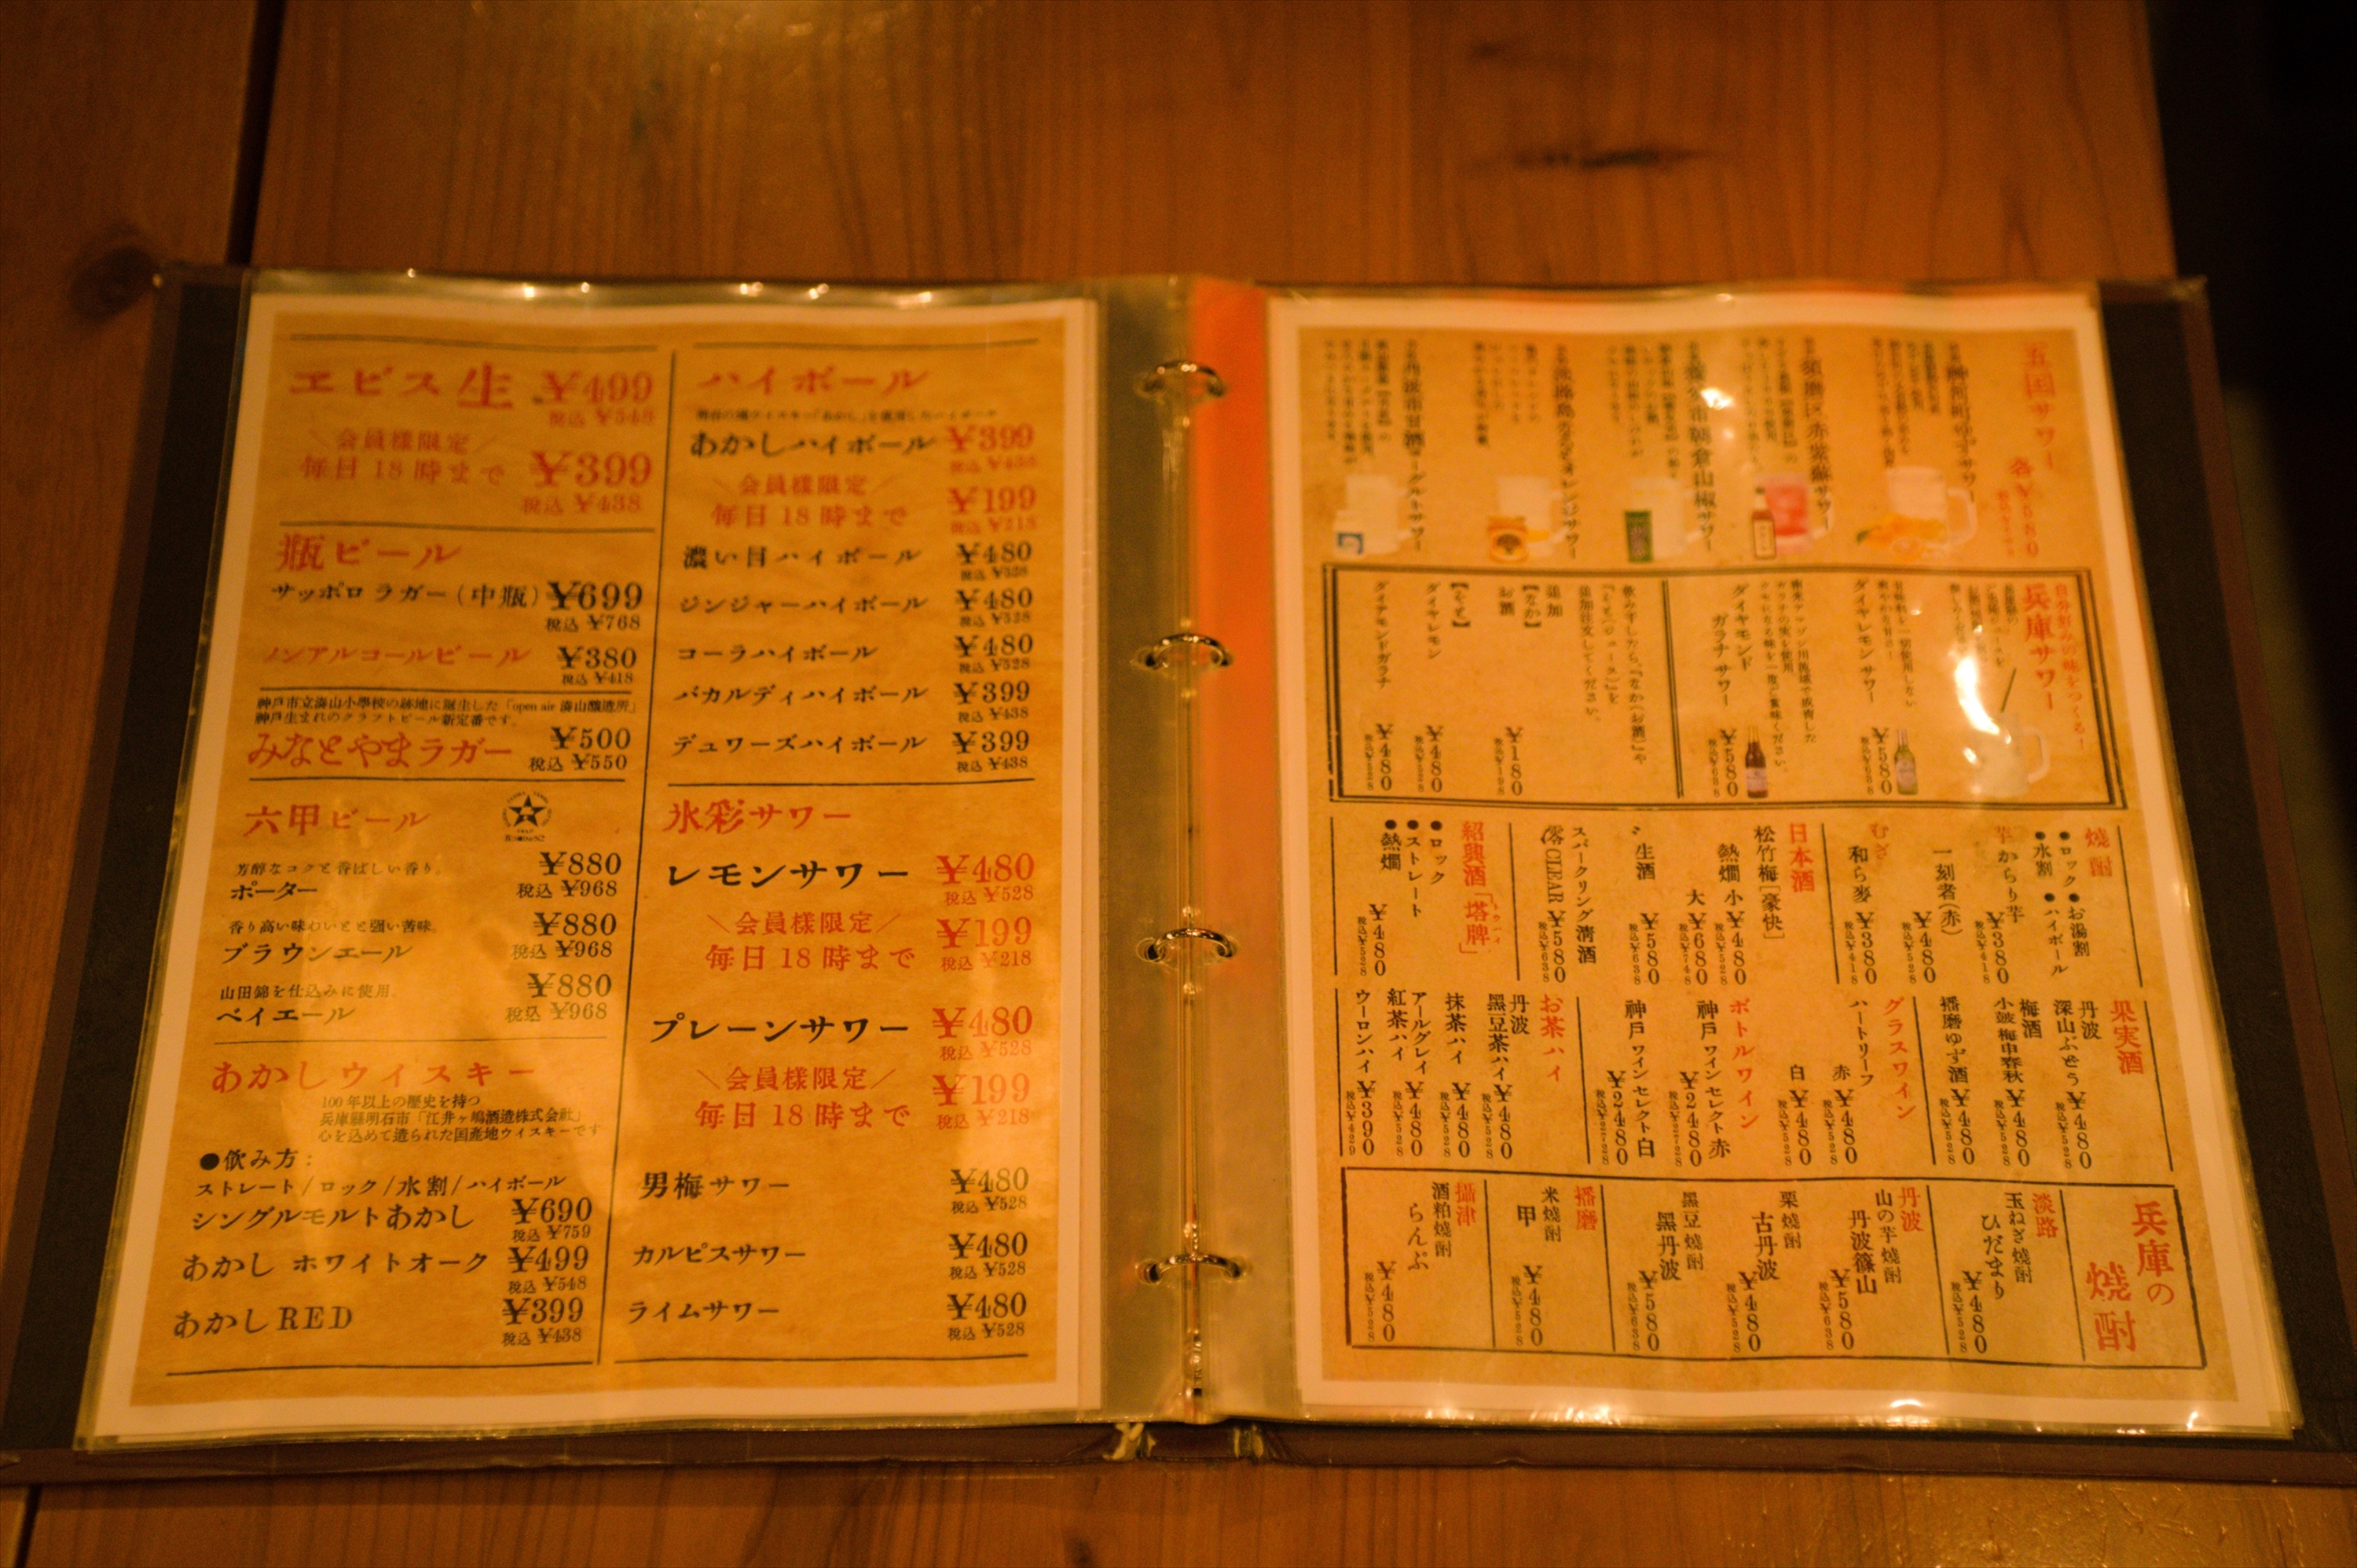 エビス生 ¥499
税込 ¥549
＼会員様限定／
毎日18時まで ¥399
税込 ¥438
瓶ビール
サッポロ ラガー(中瓶) ¥699
税込 ¥768
ノンアルコールビール ¥380
税込 ¥418
神戸市立湊山小學校の跡地に誕生した「open air 湊山醸造所」
神戸生まれのクラフトビール新定番です。
みなとやまラガー ¥500
税込 ¥550
六甲ビール
芳醇なコクと香ばしい香り。
ポーター ¥880
税込 ¥968
香り高い味わいと強い苦味。
ブラウンエール ¥880
税込 ¥968
山田錦を仕込みに使用。
ベイエール ¥880
税込 ¥968
あかしウイスキー
100年以上の歴史を持つ
兵庫縣明石市「江井ヶ嶋酒造株式会社」
心を込めて造られた国産地ウイスキーです
●飲み方：
ストレート/ロック/水割/ハイボール
シングルモルトあかし ¥690
税込 ¥759
あかし ホワイトオーク ¥499
税込 ¥548
あかしRED ¥399
税込 ¥438
ハイボール
あかしハイボール ¥399
税込 ¥438
＼会員様限定／
毎日18時まで ¥199
税込 ¥218
濃い目ハイボール ¥480
税込 ¥528
ジンジャーハイボール ¥480
税込 ¥528
コーラハイボール ¥480
税込 ¥528
バカルディハイボール ¥399
税込 ¥438
デュワーズハイボール ¥399
税込 ¥438
氷彩サワー
レモンサワー ¥480
税込 ¥528
＼会員様限定／
毎日18時まで ¥199
税込 ¥218
プレーンサワー ¥480
税込 ¥528
＼会員様限定／
毎日18時まで ¥199
税込 ¥218
男梅サワー ¥480
税込 ¥528
カルピスサワー ¥480
税込 ¥528
ライムサワー ¥480
税込 ¥528
五国サワー 各¥580
神河町ゆずサワー
須磨区赤紫蘇サワー
朝倉山椒サワー
オレンジサワー
ヨーグルトサワー
自分好みの味をつくる！
兵庫サワー
ダイヤレモンサワー ¥580
税込¥638
ダイヤモンド
ガラナサワー ¥580
税込¥638
飲み干したら、「なか(お酒)」や
「そと(ジュース)」を
追加注文してください。
追加
【なか】
お酒 ¥180
税込¥198
【そと】
ダイヤレモン ¥480
税込¥528
ダイアモンドガラナ ¥480
税込¥528
焼酎
●ロック ●お湯割
●水割 ●ハイボール
芋 からり芋 ¥380
税込¥418
一刻者(赤) ¥480
税込¥528
むぎ
和ら麥 ¥380
税込¥418
日本酒
松竹梅[豪快]
熱燗 小 ¥480
税込¥528
大 ¥680
税込¥748
生酒 ¥580
税込¥638
スパークリング清酒
澪CLEAR ¥580
税込¥638
紹興酒「塔牌」
●ロック
●ストレート
●熱燗 ¥480
税込¥528
果実酒
丹波
深山ぶどう ¥480
税込¥528
梅酒
小鼓梅申春秋 ¥480
税込¥528
播磨ゆず酒 ¥480
税込¥528
グラスワイン
ハートリーフ
赤 ¥480
税込¥528
白 ¥480
税込¥528
ボトルワイン
神戸ワインセレクト赤
¥2480
税込¥2728
神戸ワインセレクト白
¥2480
税込¥2728
お茶ハイ
丹波
黒豆茶ハイ ¥480
税込¥528
抹茶ハイ ¥480
税込¥528
アールグレイ
紅茶ハイ ¥480
税込¥528
ウーロンハイ ¥390
税込¥429
兵庫の
焼酎
淡路
玉ねぎ焼酎
ひだまり ¥480
税込¥528
丹波
山の芋焼酎
丹波篠山 ¥580
税込¥638
栗焼酎
古丹波 ¥480
税込¥528
黒豆焼酎
黒丹波 ¥580
税込¥638
播磨
米焼酎
甲 ¥480
税込¥528
攝津
酒粕焼酎
らんぷ ¥480
税込¥528